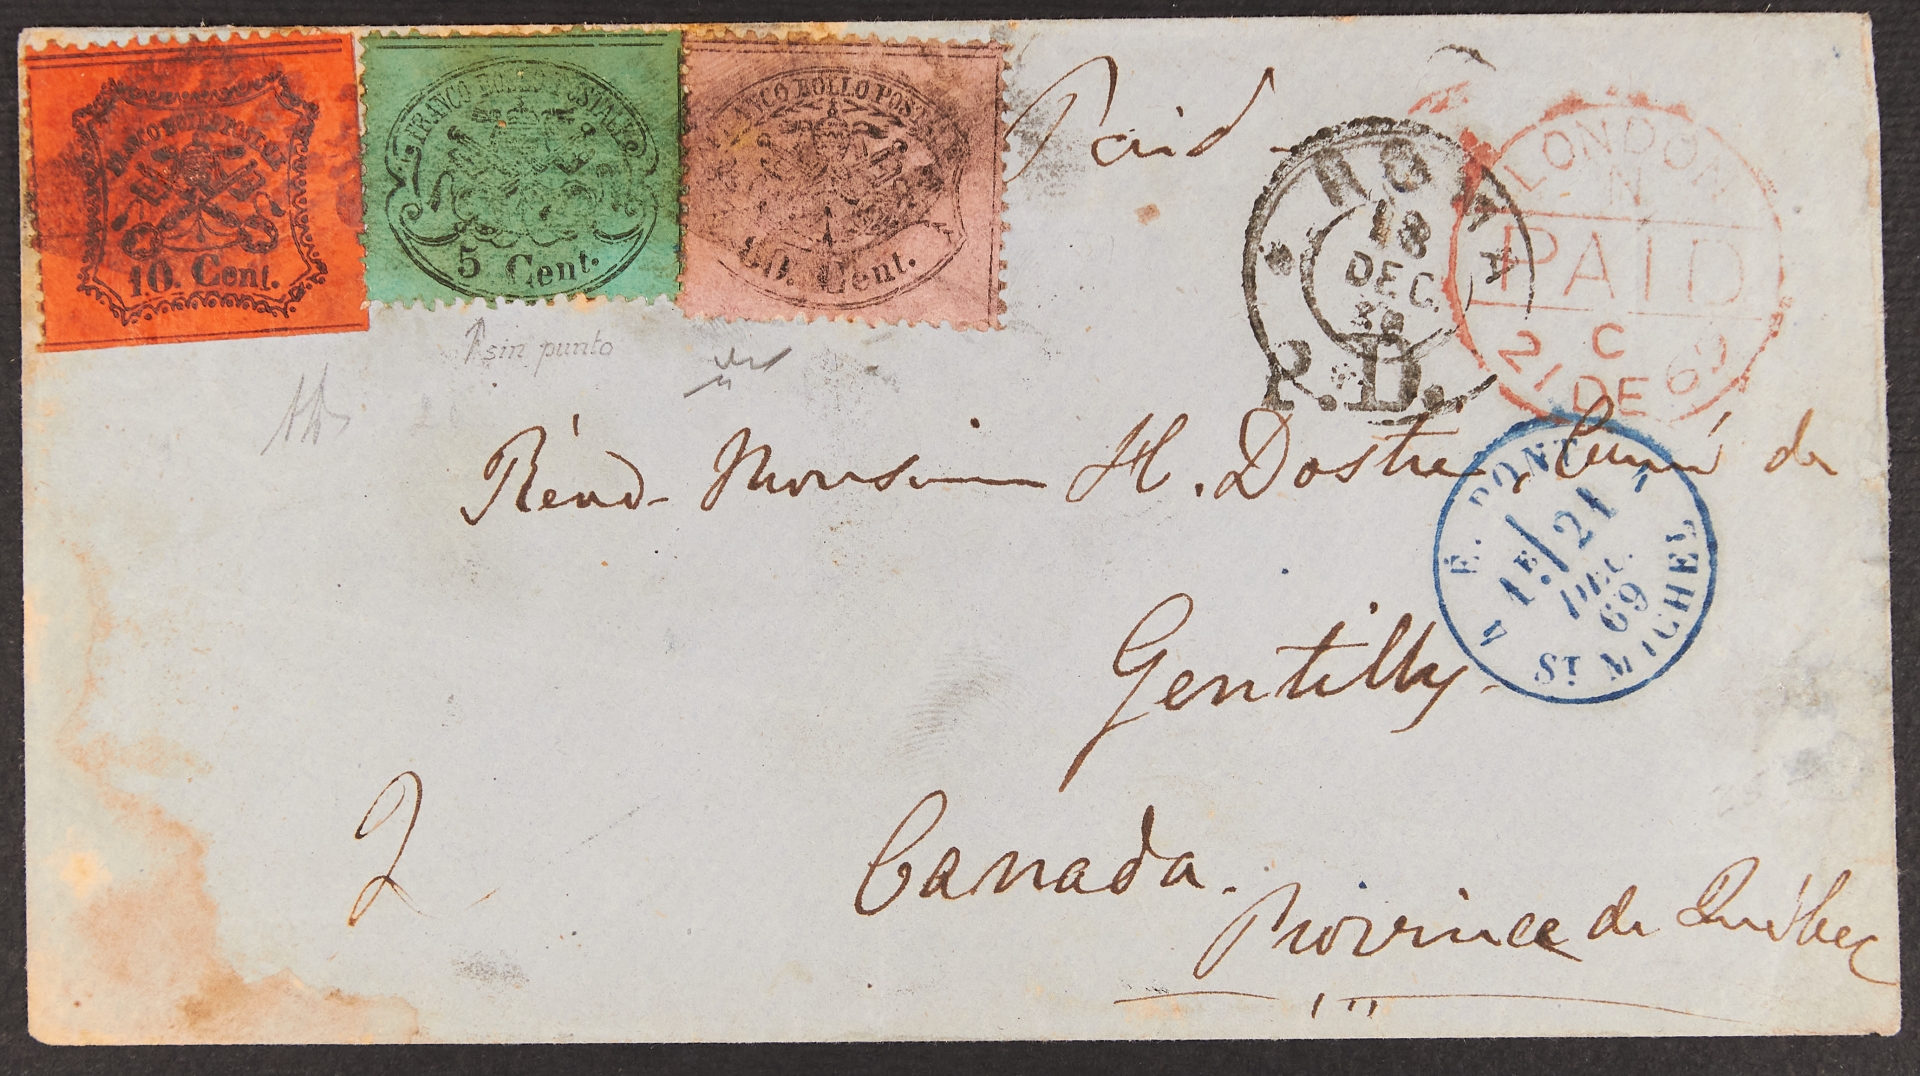 FRANCO BOLLO POSTALE
10. Cent.
FRANCO BOLLO POSTALE
5 Cent.
FRANCO BOLLO POSTALE
80. Cent.
Paid
ROMA
18
DEC.
P.D.
LONDON
N
PAID
C
21 DE 69
sin punto
Révd Monsieur H. Dostie, Curé de
É. PONT
1E/ 21
DEC.
69
A
ST MICHEL
Gentilly
2
Canada.
Province de Québec